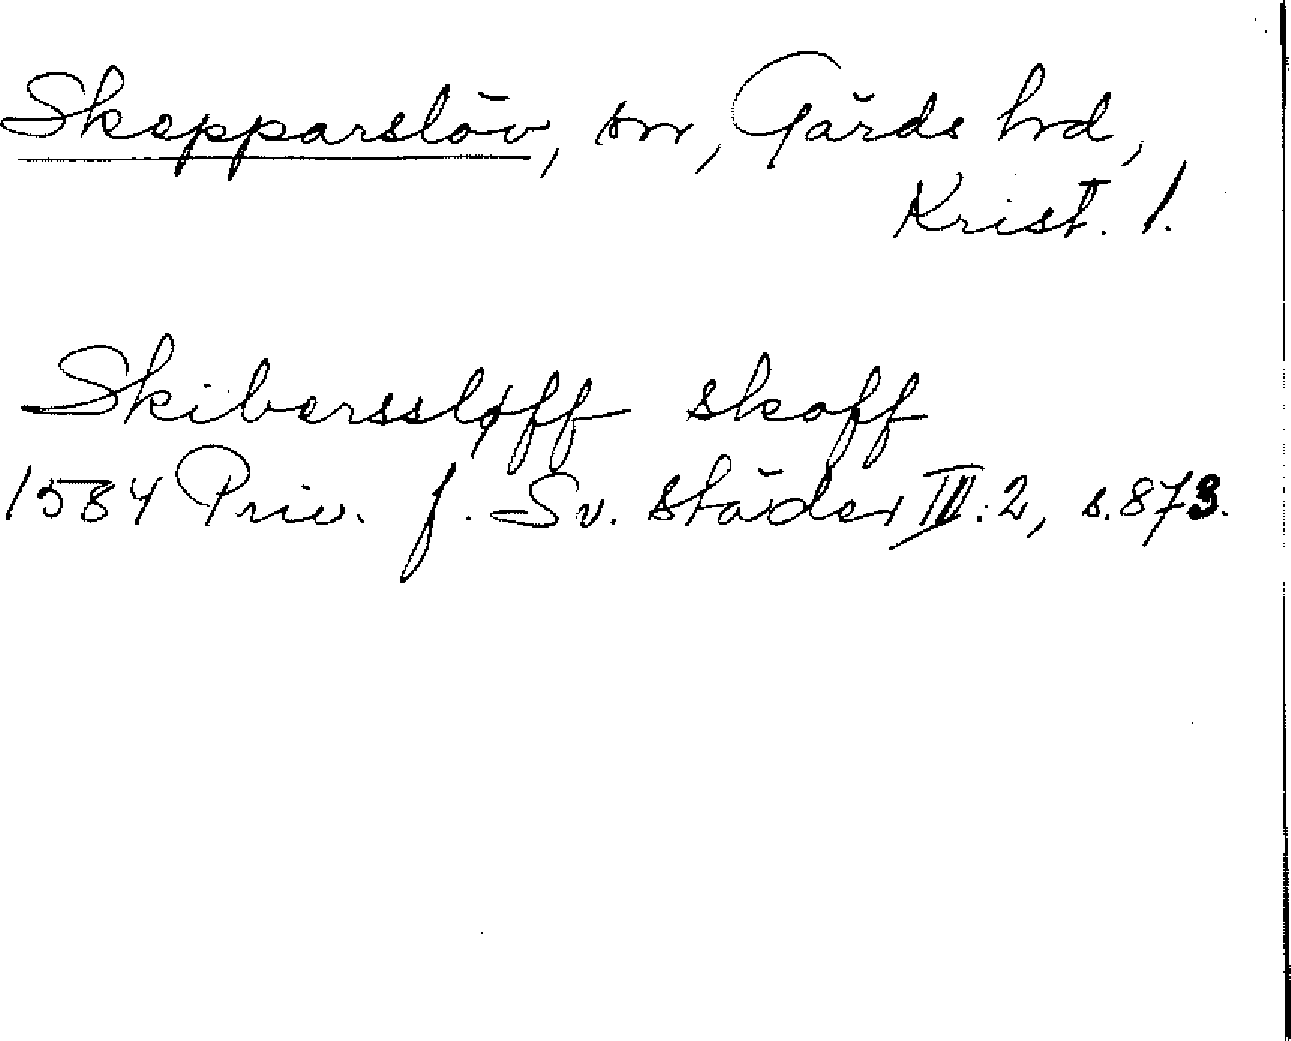 Skepparslöv, sn, Gärds hd,
Krist. l.
Skiberssløff skoff
1584 Priv. f. Sv. städer III:2, s. 873.